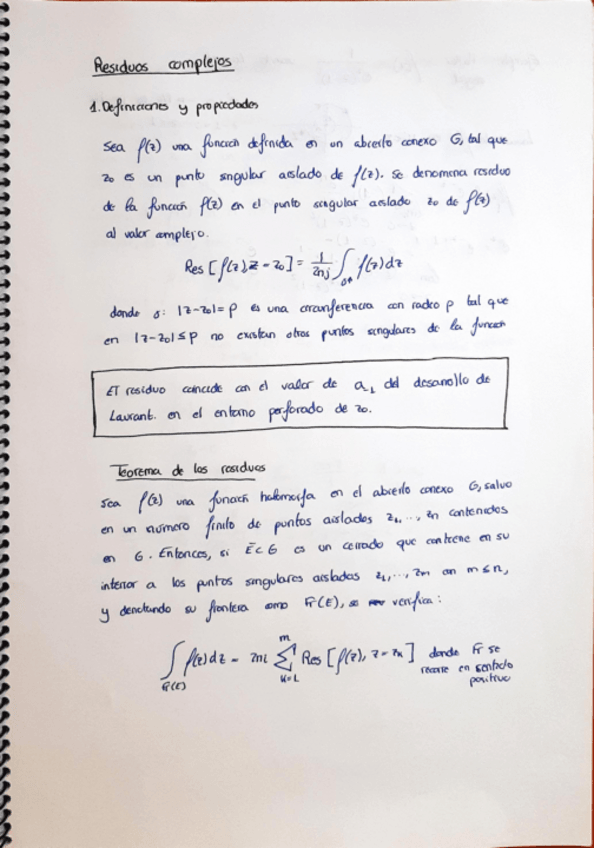 Residuos complejos
1. Definiciones y propiedades
Sea f(z) una función definida en un abierto conexo G, tal que
z₀ es un punto singular aislado de f(z). Se denomina residuo
de la función f(z) en el punto singular aislado z₀ de f(z)
al valor complejo.
Res [f(z), z - z₀] = 1/2πj ∫σ+ f(z)dz
donde σ: |z-z₀|= ρ es una circunferencia con radio ρ tal que
en |z-z₀| ≤ ρ no existan otros puntos singulares de la función
El residuo coincide con el valor de a₋₁ del desarrollo de
Laurant. en el entorno perforado de z₀.
Teorema de los residuos
Sea f(z) una función holomorfa en el abierto conexo G, salvo
en un número finito de puntos aislados z₁, ..., zn contenidos
en G. Entonces, si Ē ⊂ G es un cerrado que contiene en su
interior a los puntos singulares aislados z₁, ..., zm con m ≤ n,
y denotando su frontera como Fr(E), se verifica:
∫Fr(E) f(z)dz = 2πi Σ(k=1, m) Res [f(z), z - zk] donde Fr se
recorre en sentido
positivo